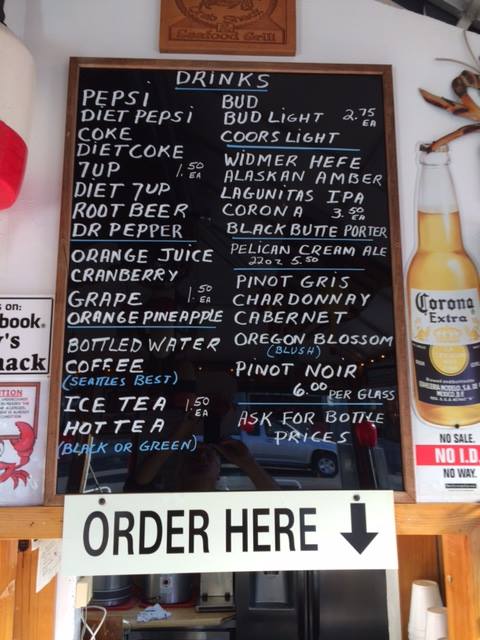 Crab Shack
Seafood Grill
DRINKS
PEPSI
DIET PEPSI
COKE
DIET COKE
7UP 1.50 EA
DIET 7UP
ROOT BEER
DR PEPPER
ORANGE JUICE
CRANBERRY
GRAPE 1.50 EA
ORANGE PINEAPPLE
BOTTLED WATER
COFFEE
(SEATTLES BEST)
ICE TEA 1.50 EA
HOT TEA
(BLACK OR GREEN)
BUD
BUD LIGHT 2.75 EA
COORS LIGHT
WIDMER HEFE
ALASKAN AMBER
LAGUNITAS IPA
CORONA 3.50 EA
BLACK BUTTE PORTER
PELICAN CREAM ALE
22oz 5.50
PINOT GRIS
CHARDONNAY
CABERNET
OREGON BLOSSOM
(BLUSH)
PINOT NOIR
6.00 PER GLASS
ASK FOR BOTTLE
PRICES
ORDER HERE
s on:
book.
y's
hack
Corona
Extra
NO SALE.
NO I.D.
NO WAY.